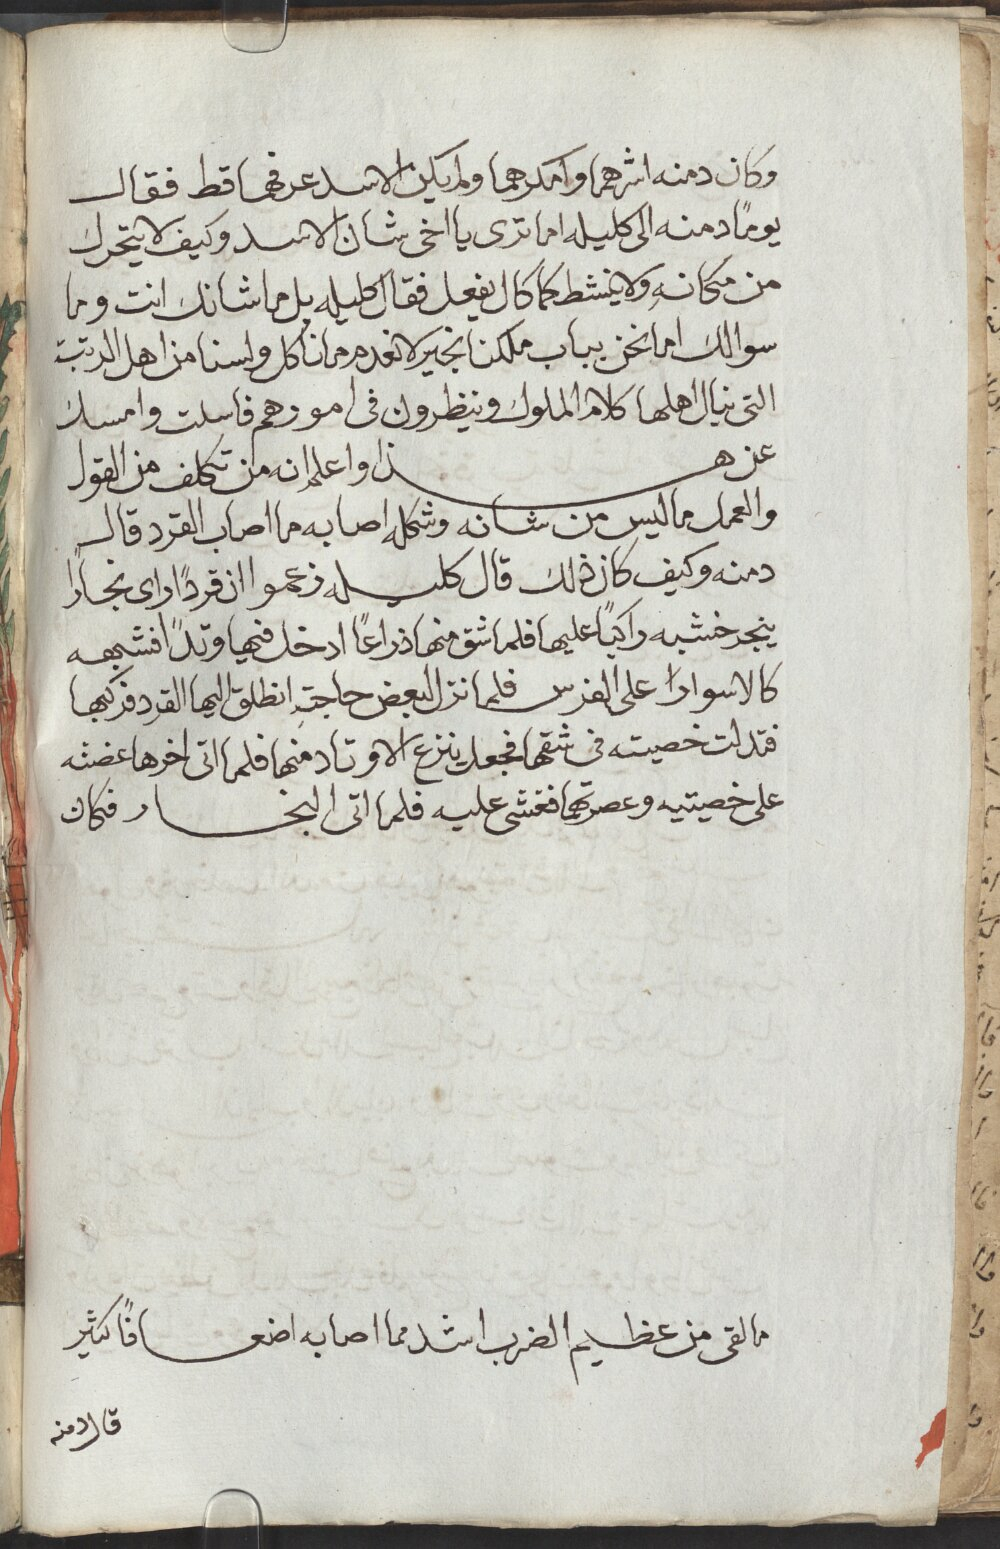 وكان دمنه اشرهما وامكرهما ولم يكن الاسد عرفها قط فقال
يومًا دمنه الى كليله اما ترى يا اخى شان الاسد وكيف لا يتحرك
من مكانه ولا ينشط كما كان يفعل فقال كليله بل ما شانك انت وما
سوالك اما نحن بباب ملكنا بخير لا نعدم ما ناكل ولسنا من اهل الرتبت
التى ينال اهلها كلام الملوك وينظرون فى امورهم فاسلت وامسك
عن هذا واعلم انه من تكلف من القول
والعمل ما ليس من شانه وشكله اصابه ما اصاب القرد قال
دمنه وكيف كان ذلك قال كليله زعموا ان قردًا راى نجارًا
ينجر خشبه راكبًا عليها فلما شق منها ذراعًا ادخل فيها وتدًا فشبهه
كالاسوارا على الفرس فلما نزل لبعض حاجته انطلق اليها القرد فركبها
فتدلت خصيته فى شقها فجعل ينزع الاوتاد منها فلما اتى اخرها عضته
على خصيتيه وعصرتهما فغشى عليه فلما اتى النجار فكان
ما لقى من عظيم الضرب اشد مما اصابه اضعافًا كثير
قال دمنه